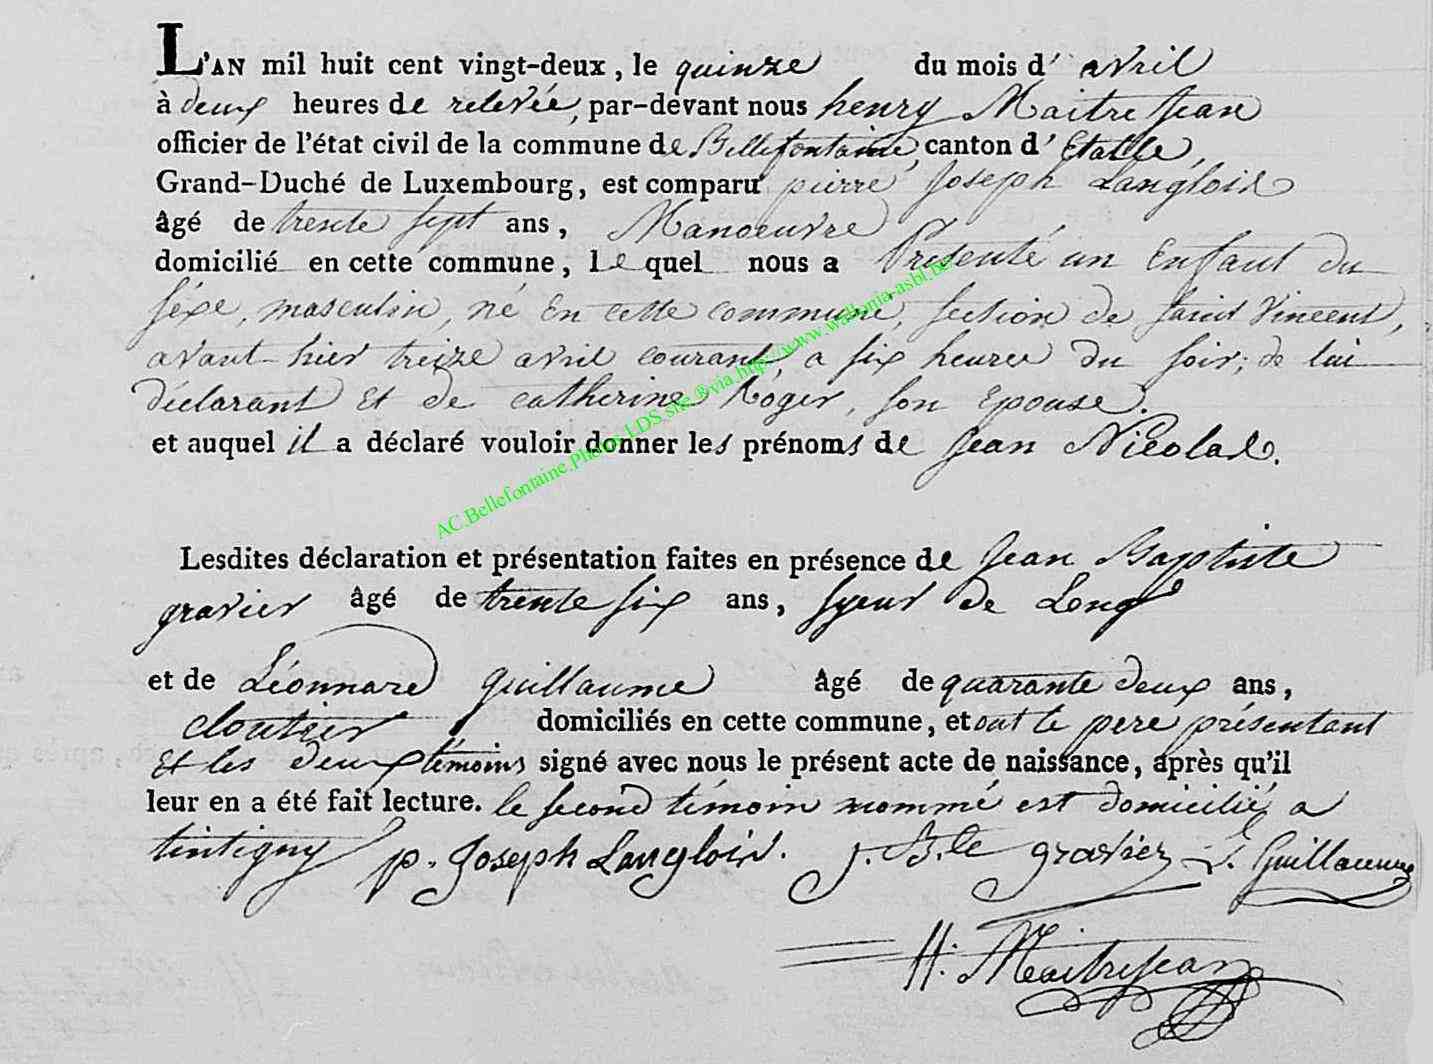 L'AN mil huit cent vingt-deux, le quinze du mois d' avril
à deux heures de relevée, par-devant nous henry Maitre Jean
officier de l'état civil de la commune de Bellefontaine, canton d' Etalle,
Grand-Duché de Luxembourg, est comparu pierre Joseph Langlois
âgé de trente sept ans, Manoeuvre
domicilié en cette commune, le quel nous a Présenté un Enfant du
séxe, masculin, né En cette commune, section de saint Vincent,
avant-hier treize avril courant, a six heures du soir; de lui
déclarant Et de catherine Roger, son Epouse.
et auquel il a déclaré vouloir donner les prénoms de Jean Nicolas.
AC.Bellefontaine.Photos LDS site @via.http://www.wallonia-asbl.be
Lesdites déclaration et présentation faites en présence de Jean Baptiste
gravier âgé de trente six ans, syeur de Long
et de Léonnard guillaume âgé de quarante deux ans,
cloutier domiciliés en cette commune, et ont le pere présentant
Et les deux témoins signé avec nous le présent acte de naissance, après qu'il
leur en a été fait lecture. le second témoin nommé est domicilié a
tintigny p. Joseph Langlois. J. B.te gravier L. Guillaume
H. Maitrejean